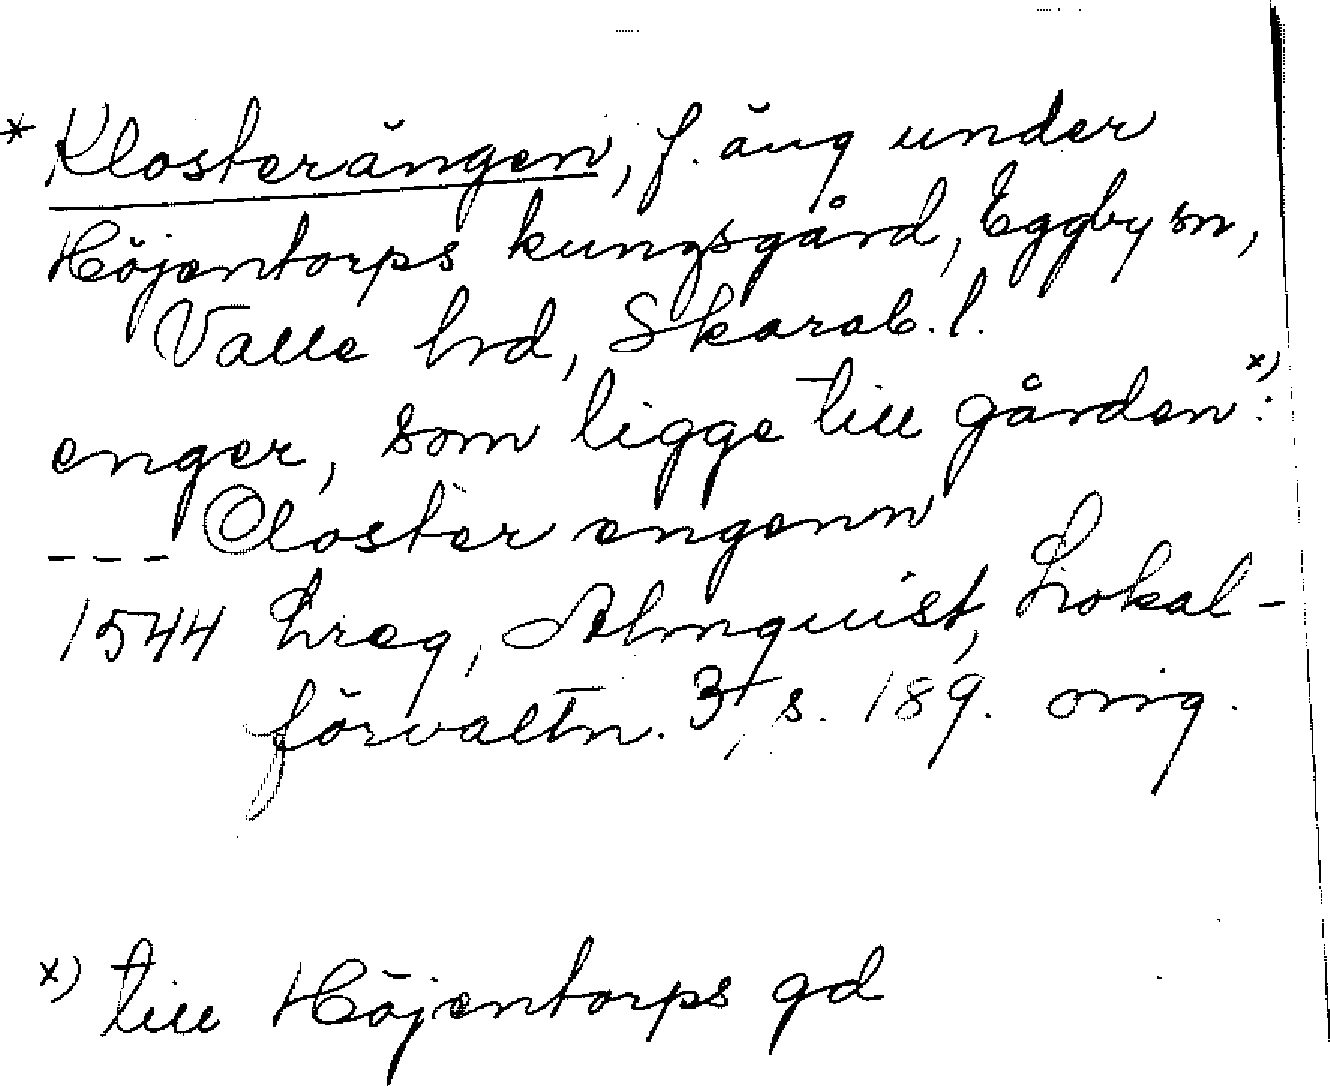 * Klosterängen, f. äng under
Höjentorps kungsgård, Eggby sn,
Valle hrd, Skarab. l.
enger, som ligge till gården x):
--- Closter engenn
1544 Lreg, Almquist, Lokal-
förvaltn. 3, s. 189. orig.
x) till Höjentorps gd